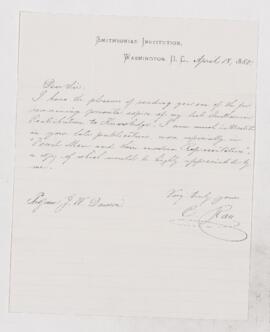 SMITHSONIAN INSTITUTION,
WASHINGTON, D. C., April 18, 1880.
Dear Sir:
I have the pleasure of sending you one of the few
remaining private copies of my last Smithsonian
Contribution to Knowledge. I am much interested
in your late publications, more especially in
"Fossil Men and their modern Representatives",
a copy of which would be highly appreciated by
me.
Very truly yours
C. Rau
Professor J. W. Dawson